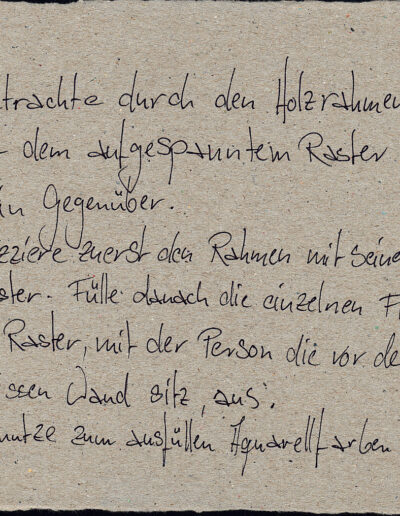 trachte durch den Holzrahmen
dem aufgespanntem Raster
in Gegenüber.
zziere zuerst den Rahmen mit seine
ster. Fülle danach die einzelnen F
Raster, mit der Person die vor de
issen Wand sitz, aus.
nutze zum ausfüllen Aquarellfarben